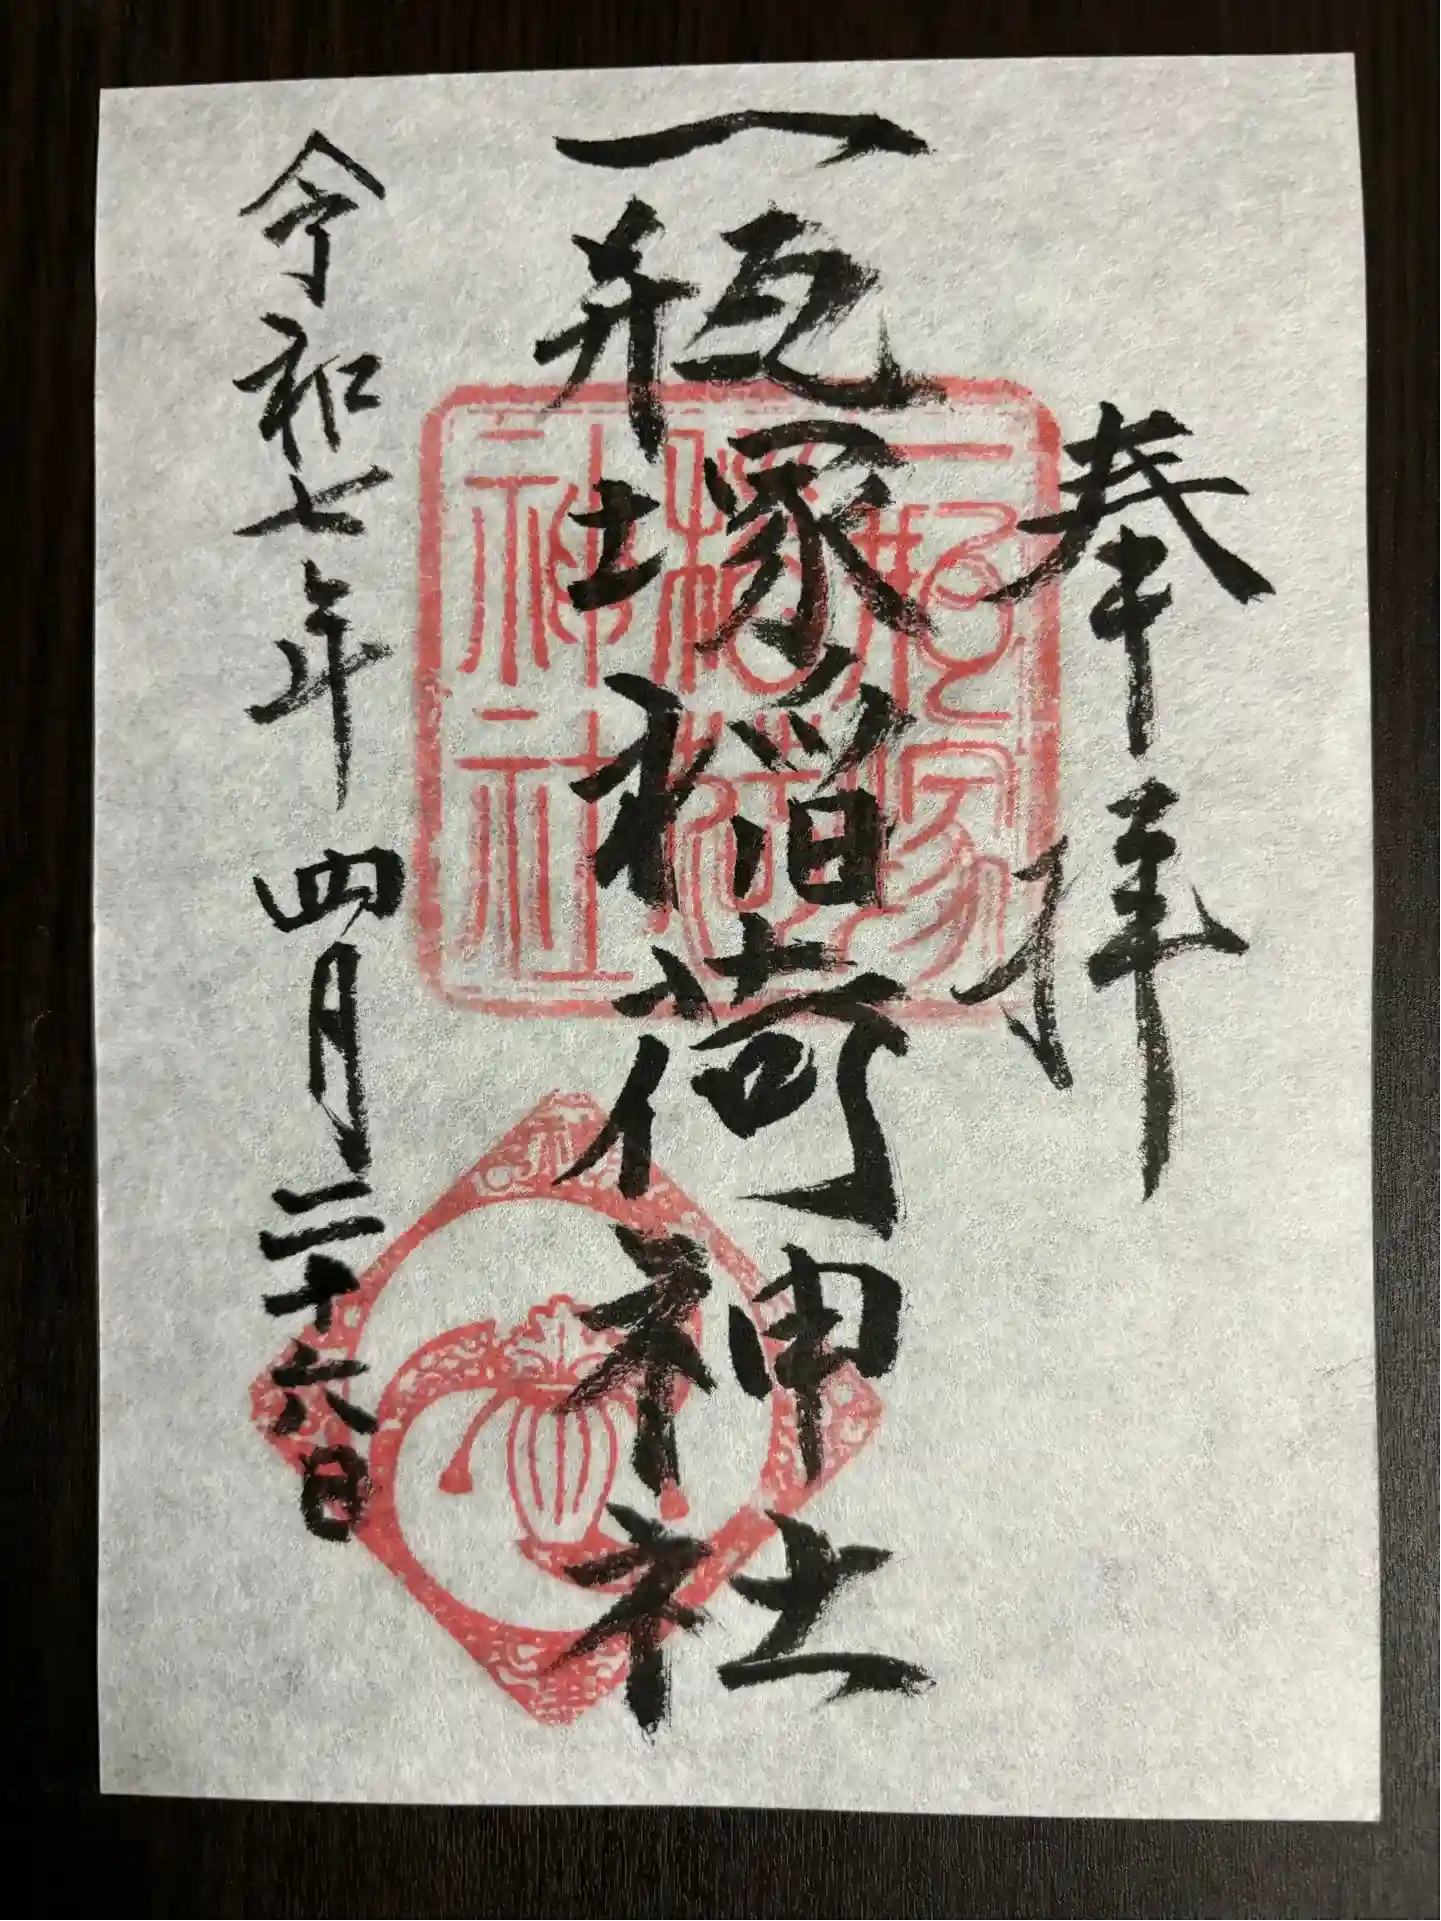 奉拝
一瓶塚稲荷神社
一瓶塚
稲荷
神社
令和七年四月二十六日